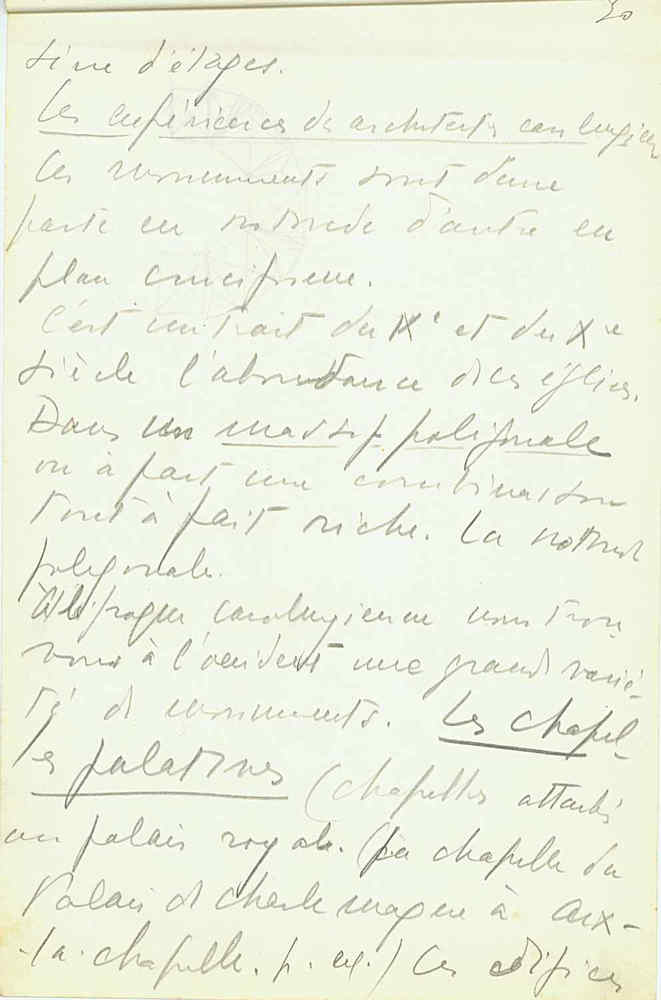 30
série d'étages.
Les expériences des architectes carolingiens
Ces monuments sont d'une
parte en rotonde d'autre en
plan cruciforme.
C'est un trait du IXe et du Xe
siècle l'abondance des églises.
Dans un massif poligonale
on a fait une combinaison
tout à fait riche. La rotond
poligonale.
A l'époque carolingienne nous trou
vons à l'occident une grand varié-
té de monuments. Les chapel-
les palatines (chapelles attachés
au palais royale. (La chapelle du
Palais de Charlemagne à Aix-
-la-chapelle. p. ex.) Ces édifices